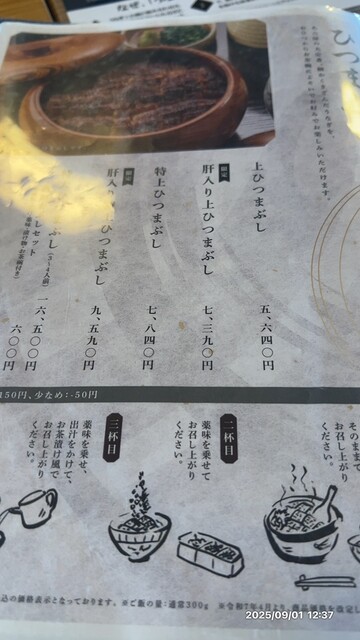 なぜ、
ひつ
上ひつまぶし
五、六四〇円
限定
肝入り上ひつまぶし
七、三九〇円
特上ひつまぶし
七、八四〇円
肝入
ひつまぶし
九、五九〇円
ぶし(3〜4人前)
一六、五〇〇円
しセット
薬味・漬け物・お茶碗付き
六〇〇円
150円、少なめ:-50円
そのままで
お召し上がり
ください。
二杯目
薬味を乗せて
お召し上がり
ください。
三杯目
薬味を乗せ、
出汁をかけて、
お茶漬け風で
お召し上がり
ください。
込の価格表示となっております。 ※ご飯の量:通常300g ※令和7年4月より、
2025/09/01 12:37